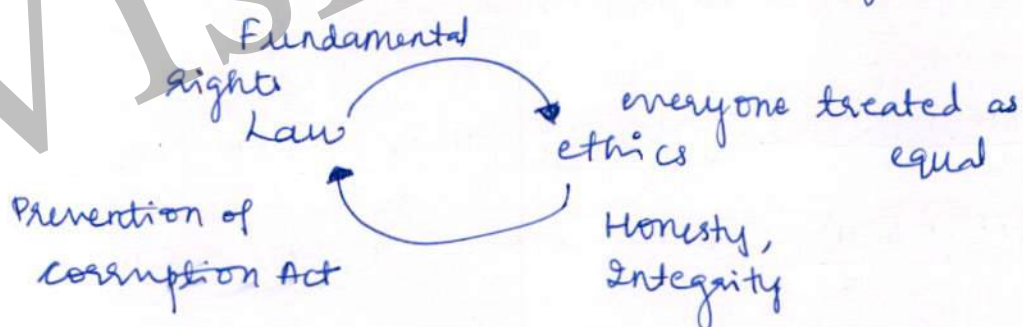 Fundamental
rights
Law
ethics
everyone treated as
equal
Prevention of
corruption Act
Honesty,
Integrity